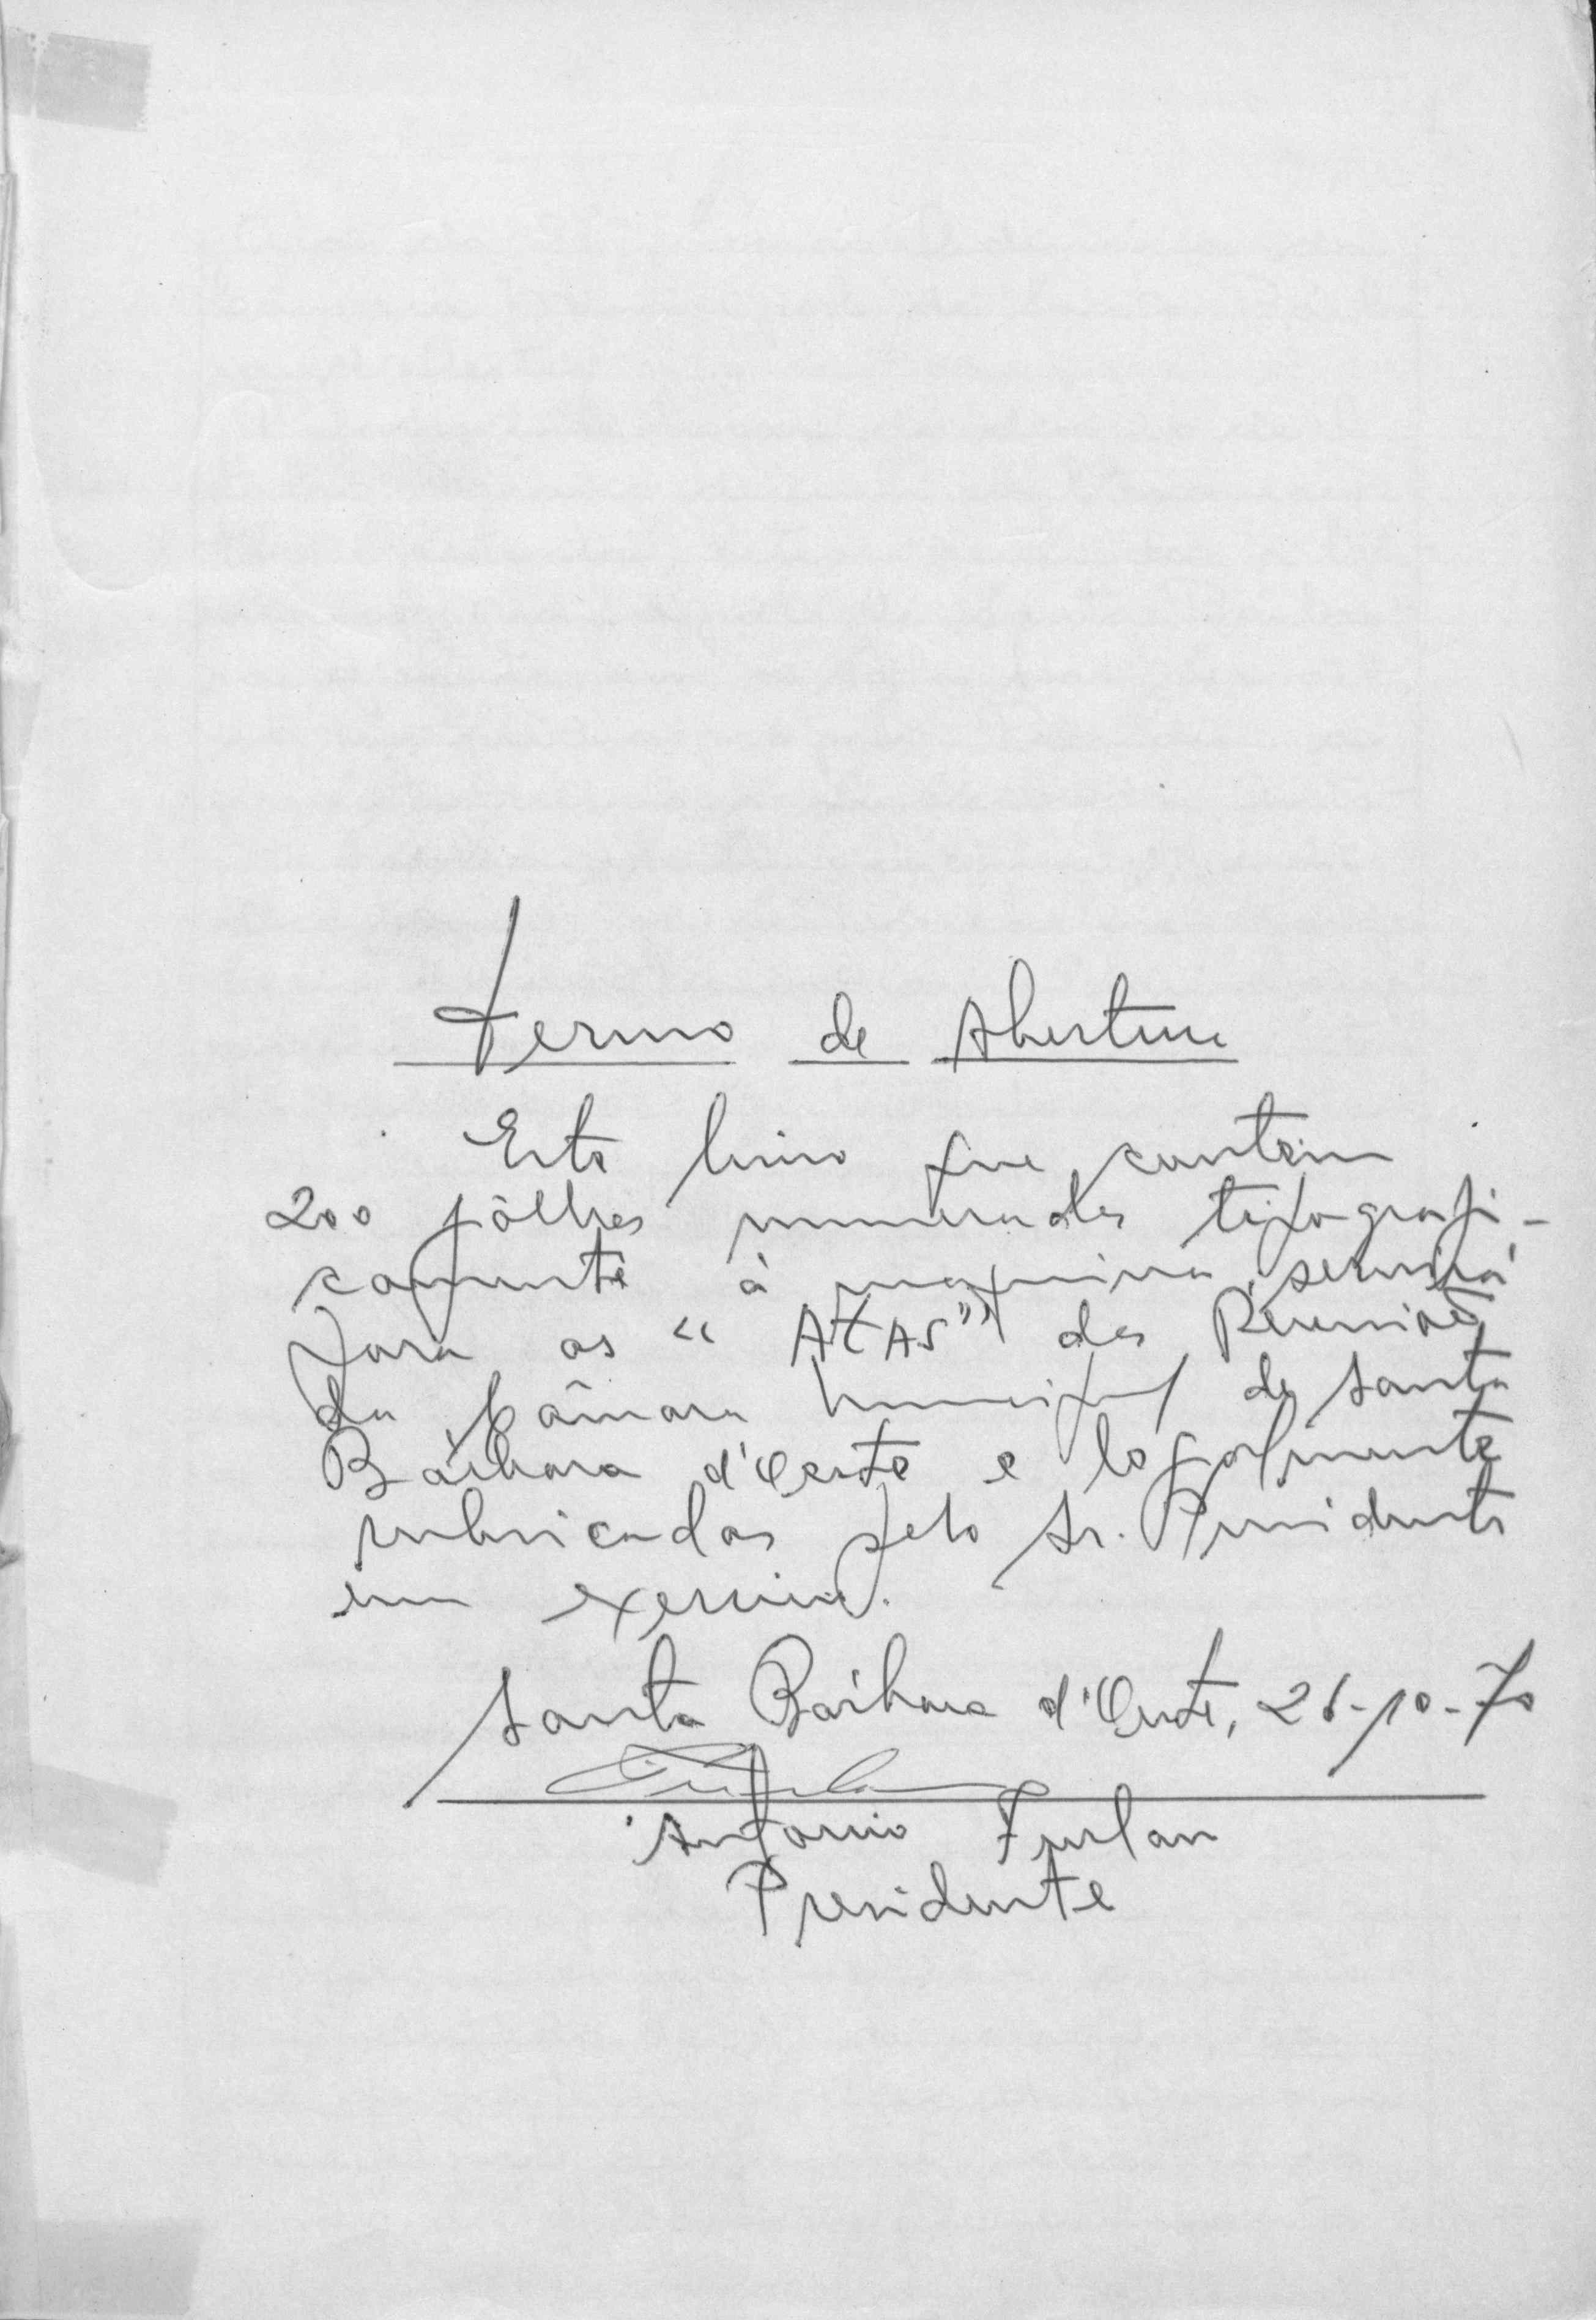 Termo de Abertura
Este livro que contém
200 fôlhas numeradas tipografi-
camente à maquina servirá
para as "ATAS" das Reuniões
da Câmara Municipal de Santa
Bárbara d'Oeste e legalmente
rubricadas pelo Sr. Presidente
em exercício.
Santa Bárbara d'Oeste, 26-10-70
Antonio Furlan
Presidente